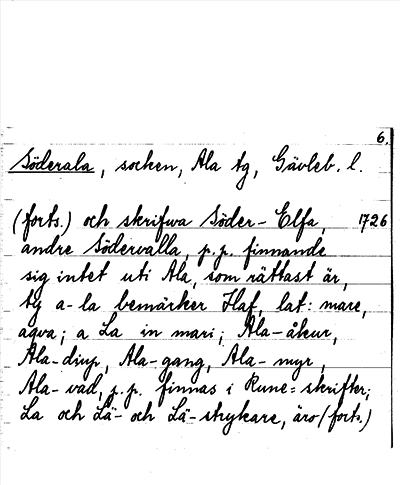 6.
Söderala, socken, Ala tg, Gävleb. l.
(forts.) och skrifwa Söder-Elfa, 1726
andre Södervalla, p.p. finnande
sig intet uti Ala, som rättast är,
ty a-la bemärker Haf, lat: mare,
aqva; a La in mari; Ala-åkur,
Ala-diup, Ala-gang, Ala-myr,
Ala-vad, p.p. finnas i Rune=skrifter;
La och Lä- och Lä-strykare, äro (forts.)